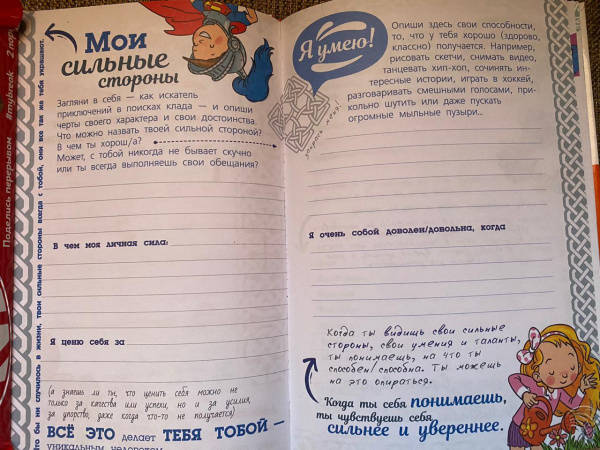 Мои
сильные
стороны
Загляни в себя — как искатель
приключений в поисках клада — и опиши
черты своего характера и свои достоинства.
Что можно назвать твоей сильной стороной?
В чем ты хорош/а?
Может, с тобой никогда не бывает скучно
или ты всегда выполняешь свои обещания?
В чем моя личная сила:
Я ценю себя за
(а знаешь ли ты, что ценить себя можно не
только за качества или успехи, но и за усилия,
за упорство, даже когда что-то не получается)
ВСЁ ЭТО делает ТЕБЯ ТОБОЙ —
уникальным человеком
что бы ни случилось в жизни, твои сильные стороны всегда с тобой, они все так же тебя украшают.
Поделись перерывом
#mybreak
2 пор
Я умею!
раскрась меня!
Опиши здесь свои способности,
то, что у тебя хорошо (здорово,
классно) получается. Например,
рисовать скетчи, снимать видео,
танцевать хип-хоп, сочинять ин-
тересные истории, играть в хоккей,
разговаривать смешными голосами, при-
кольно шутить или даже пускать
огромные мыльные пузыри..
Я очень собой доволен/довольна, когда
Когда ты видишь свои сильные
стороны, свои умения и таланты,
ты понимаешь, на что ты
способен/способна. Ты можешь
на это опираться.
Когда ты себя понимаешь,
ты чувствуешь себя
сильнее и увереннее.